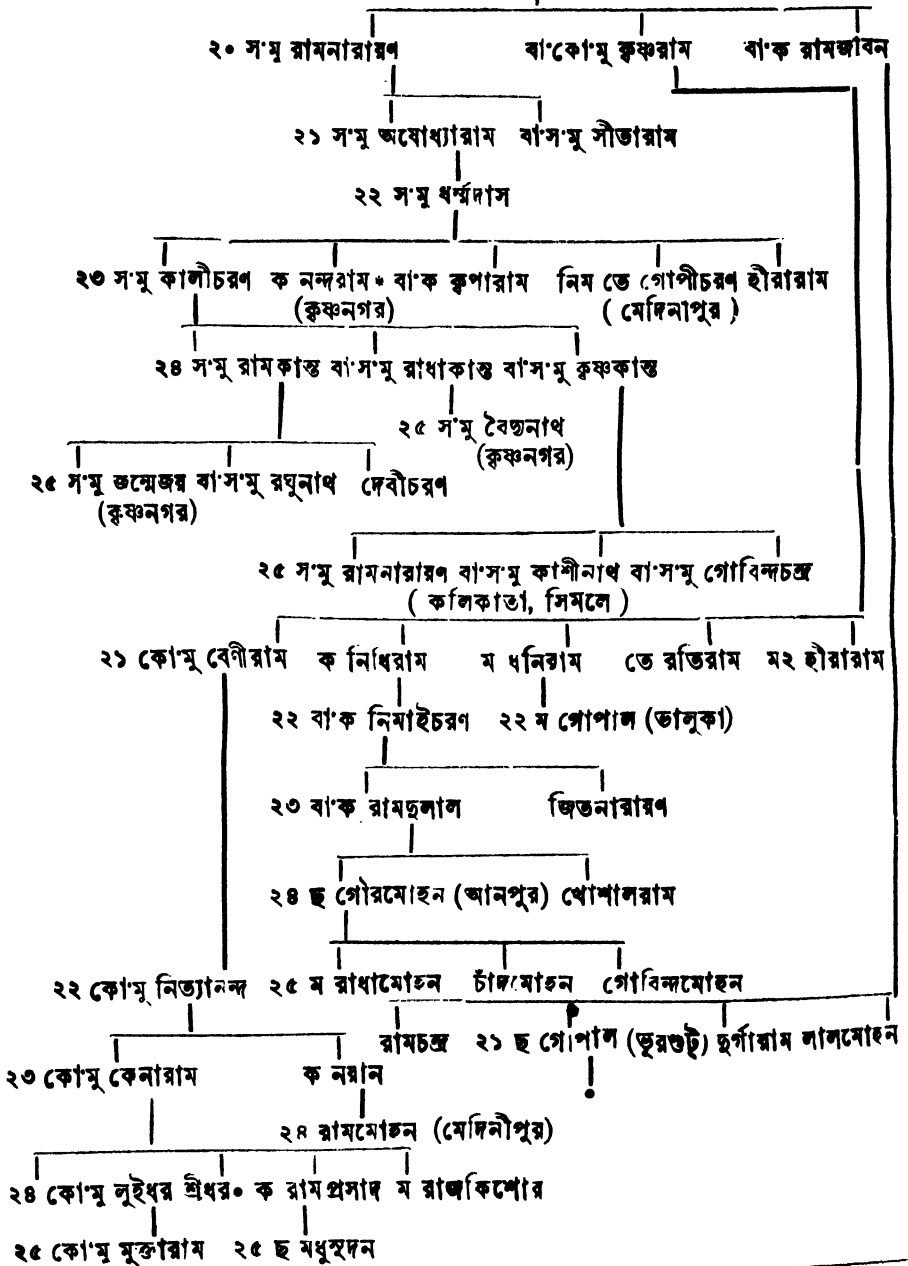 ২০ স'মু রামনারায়ণ বা'কো'মু কৃষ্ণরাম বা'ক রামজীবন
২১ স'মু অযোধ্যারাম বা'স'মু সীতারাম
২২ স'মু ধর্ম্মদাস
২৩ স'মু কালীচরণ ক নন্দরাম * বা'ক কৃপারাম নিম তে গোপীচরণ হীরারাম
(কৃষ্ণনগর) ( মেদিনাপুর )
২৪ স'মু রামকান্ত বা'স'মু রাধাকান্ত বা'স'মু কৃষ্ণকান্ত
২৫ স'মু বৈদ্যনাথ
(কৃষ্ণনগর)
২৫ স'মু জন্মেজয় বা'স'মু রঘুনাথ দেবীচরণ
(কৃষ্ণনগর)
২৫ স'মু রামনারায়ণ বা'স'মু কাশীনাথ বা'স'মু গোবিন্দচন্দ্র
( কলিকাতা, সিমলে )
২১ কো'মু বেণীরাম ক নিধিরাম ম ধনিরাম তে রতিরাম ম২ হীরারাম
২২ বা'ক নিমাইচরণ ২২ ম গোপাল (ভালুকা)
২৩ বা'ক রামদুলাল জিতনারায়ণ
২৪ ছ গৌরমোহন (আনপুর) খোশালরাম
২২ কো'মু নিত্যানন্দ ২৫ ম রাধামোহন চাঁদমোহন গোবিন্দমোহন
রামচন্দ্র ২১ ছ গোপাল (ভূরশুট্) দুর্গারাম লালমোহন
২৩ কো'মু কেনারাম ক নয়ান
২৪ রামমোহন (মেদিনীপুর)
২৪ কো'মু লুইধর শ্রীধর * ক রামপ্রসাদ ম রাজকিশোর
২৫ কো'মু মুক্তারাম ২৫ ছ মধুসূদন